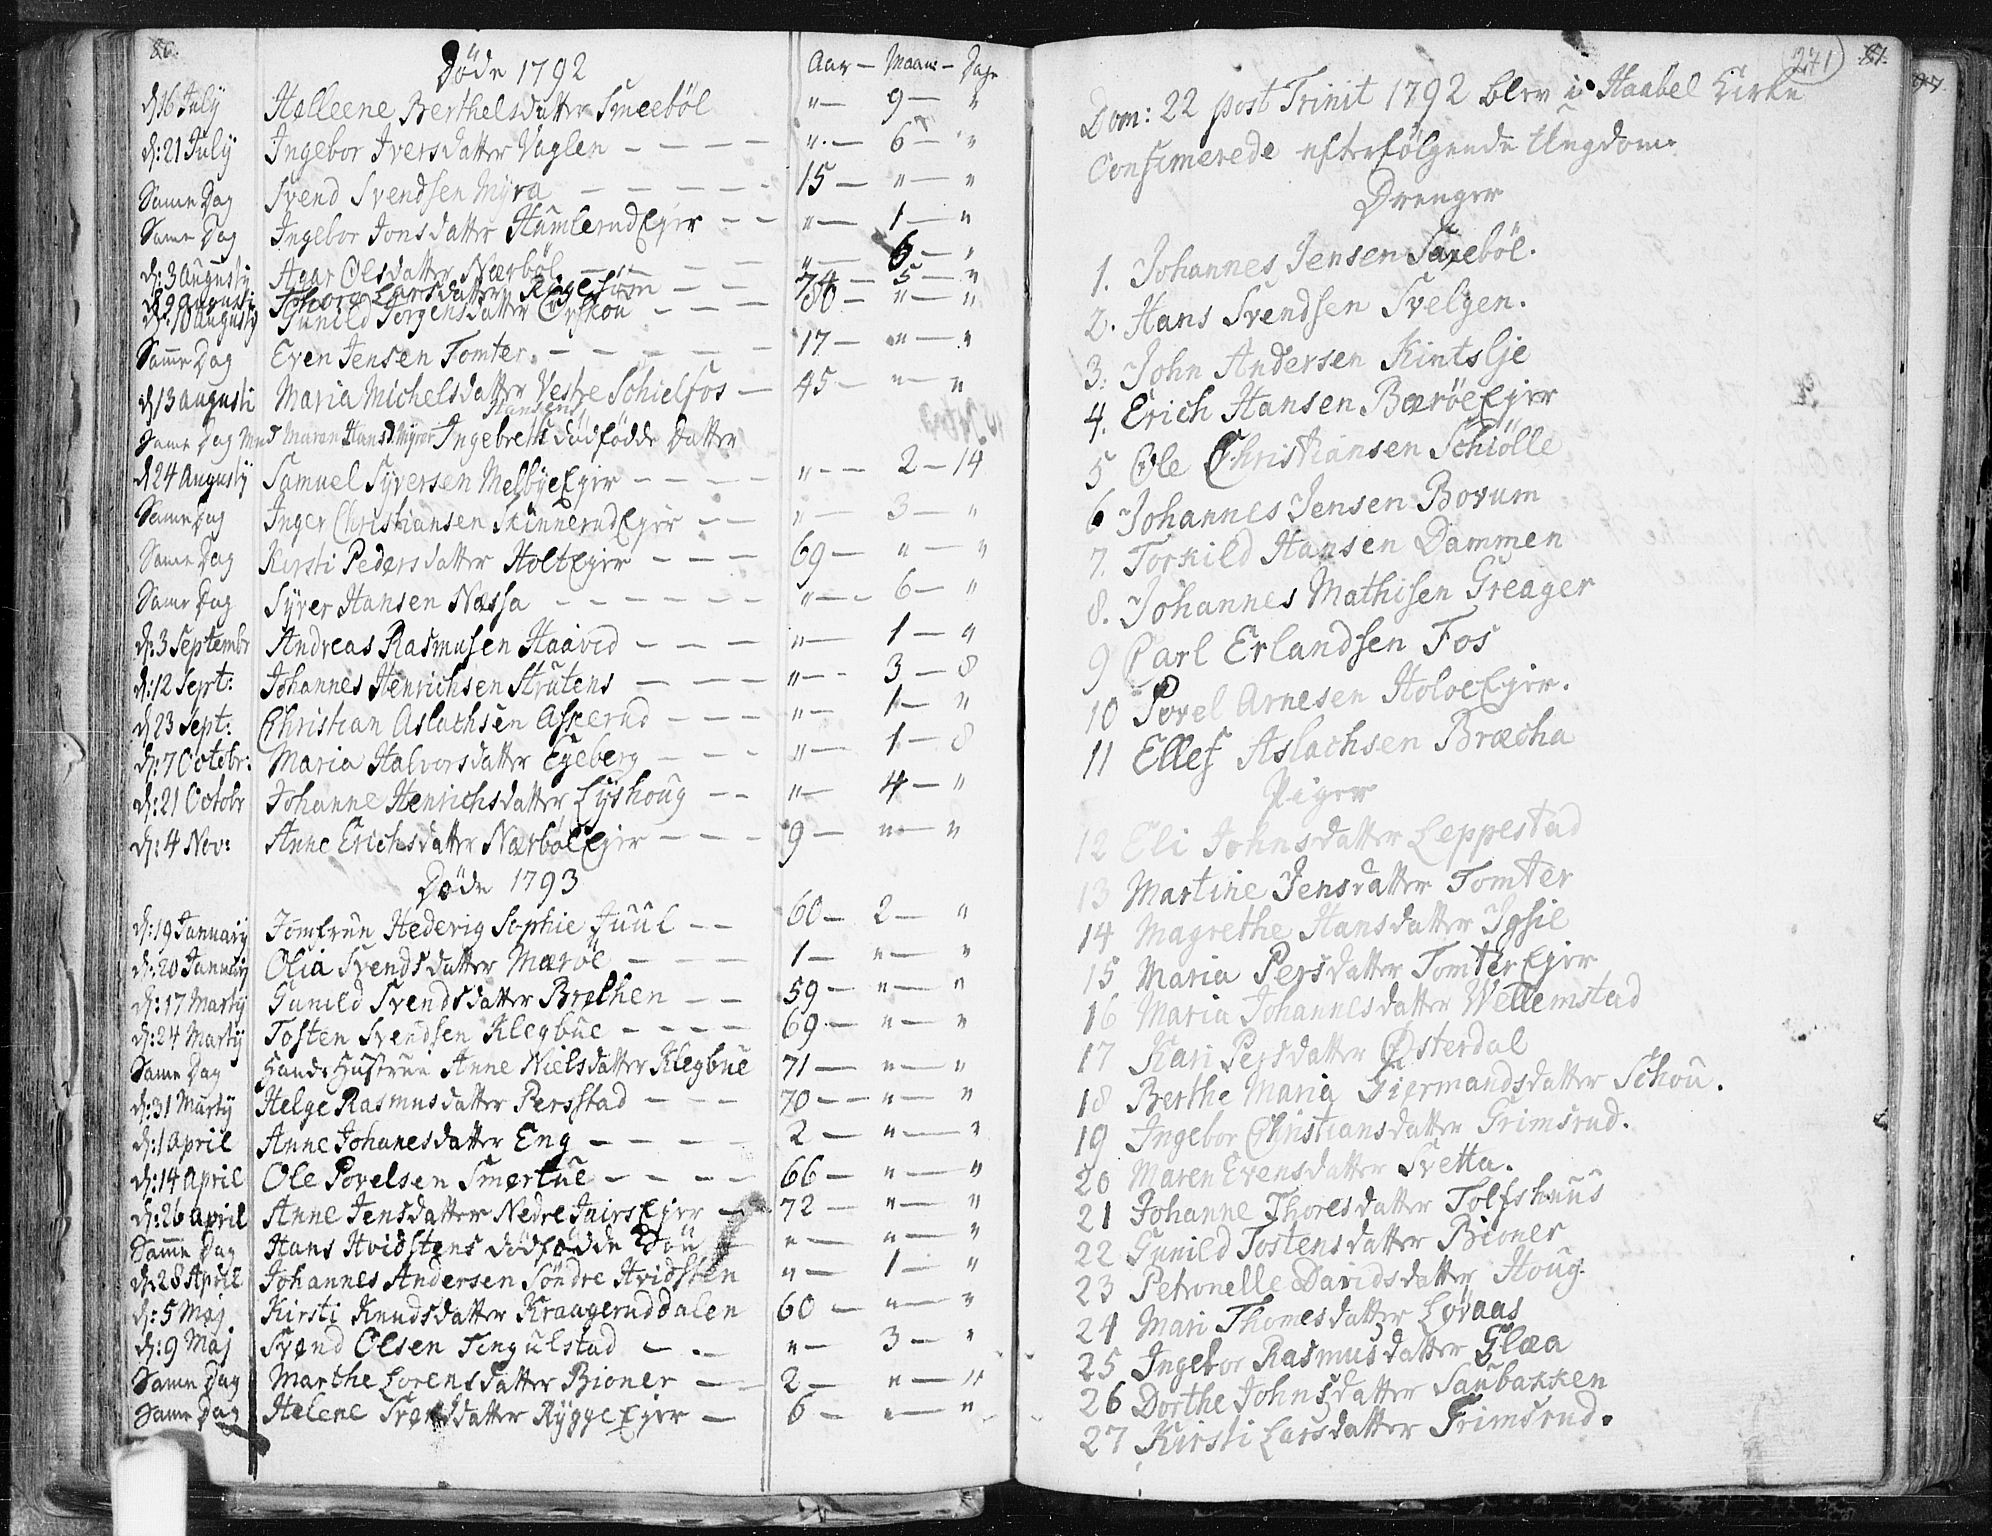 86.
Döde 1792
Aar — Maan: — Dage
d: 16 July Helleene Berthelsdatter Smeebøl „ — 9 — „
d: 21 July Ingebor Iversdatter Vaglen — — — — „ — 6 „
Same Dag Svend Svendsen Myra — — — — — 15 — „ — „
Same Dag Ingebor Jonsdatter Humlerud Ejer — — „ — 1 — „
d: 3 Augusty Agar Olsdatter Nærbøl — — — „ — 6 — „
d: 9 Augusti Larsdatter — — 74 — 5 — „
d: 10 Augusty Gunild Torgersdatter Ørskou — — 80 — „ — „
Same Dag Even Jensen Tomter — — — — — 17 — „ — „
d: 13 Augusti Maria Michelsdatter Vestre Schielfos — 45 — „ — „
Same Dag Ingebretts dødfødde Datter
d 24 Augusty Samuel Syversen Melbye Ejer — — — — „ — 2 — 14
Same Dag Inger Christiansen Skinnerud Ejer — — „ — 3 — „
Same Dag Kirsti Pedersdatter Holt Ejer — — — 69 — „ — „
Same Dag Syver Hansen Næssa — — — — — — „ — 6 — „
d: 3 Septembr Andreas Rasmusen Haavid — — — „ — 1 — „
d: 12 Sept: Johannes Henrichsen Strutens — — — „ — 3 — 8
d 23 Sept: Christian Aslachsen Asperud — — — „ — 1 — „
d: 7 Octobr: Maria Halvorsdatter Egeberg — — — „ — 1 — 8
d: 21 Octobr Johanne Henrichsdatter Lyshoug — — „ — 4 — „
d: 4 Nov: Anne Erichsdatter Nærbøl Ejer — — — 9 — „ — „
Døde 1793
d: 19 January Jomfrue Hedevig Sophie Juul — — 60 — 2 — „
d: 20 January Olia Svendsdatter Mærøe — — — 1 — „ — „
d: 17 Marty Gunild Svendsdatter Brekken — — 59 — „ — „
d: 24 Marty Tosten Svendsen Klegbue — — — — 69 — „ — „
Same Dag Hands Hustrue Anne Nielsdatter Klegbue 71 — „ — „
d: 31 Marty Helge Rasmusdatter Persstad — — — 70 — — „ — „
d: 1 April Anne Johanesdatter Eng — — — — 2 — „ — „
d: 14 April Ole Povelsen Smertue — — — — 66 — „ — „
d: 26 April Anne Jensdatter Nedre Ejer — 72 — „ — „
Samme Dag Hans Hvidstens dødfødde Søn — „ — „ — „
d: 28 April Johannes Andersen Söndre Hvidsten „ — 1 — „
d: 5 Maj Kirsti Knudsdatter Kraageruddalen 60 — „ — „
d: 9 Maj Svend Olsen Tingulstad — — „ — 3 — „
Same Dag Marthe Lorensdatter Bioner — — 2 — „ — „
Same Dag Helene Svendsdatter Rygge Ejer — 6 — „ — „
241 81.
Dom: 22 post Trinit 1792 blev i Haabel Kirke
Confimerede efterfølgende Ungdom.
Drenger
1. Johannes Jensen Saxebøl.
2. Hans Svendsen Svelgen.
3. John Andersen Kintslje
4. Erich Hansen Bærøe Ejer
5 Ole Christiansen Schiølle
6 Johannes Jensen Bovum
7. Torkild Hansen Dammen
8. Johannes Mathisen Greager
9 Carl Erlandsen Fos
10 Povel Arnesen Holoe Ejer.
11 Ellef Aslachsen Bræcha
Piger
12 Eli Johnsdatter Leppestad
13 Martine Jensdatter Tomter
14 Magrethe Hansdatter Igsie
15 Maria Persdatter Tomter Ejer
16 Maria Johannesdatter Wellemstad
17 Kari Persdatter Østerdal
18 Berthe Maria Giermandsdatter Schou.
19 Ingebor Christiansdatter Grimsrud.
20 Maren Evensdatter Svetta.
21 Johanne Thoresdatter Tolfshuus
22 Gunild Tostensdatter Bioner
23 Petronelle Davidsdatter Houg.
24 Mari Thomesdatter Løvaas
25 Ingebor Rasmusdatter Glæa
26 Dorthe Johnsdatter Saubakken
27 Kirsti Larsdatter Grimsrud.